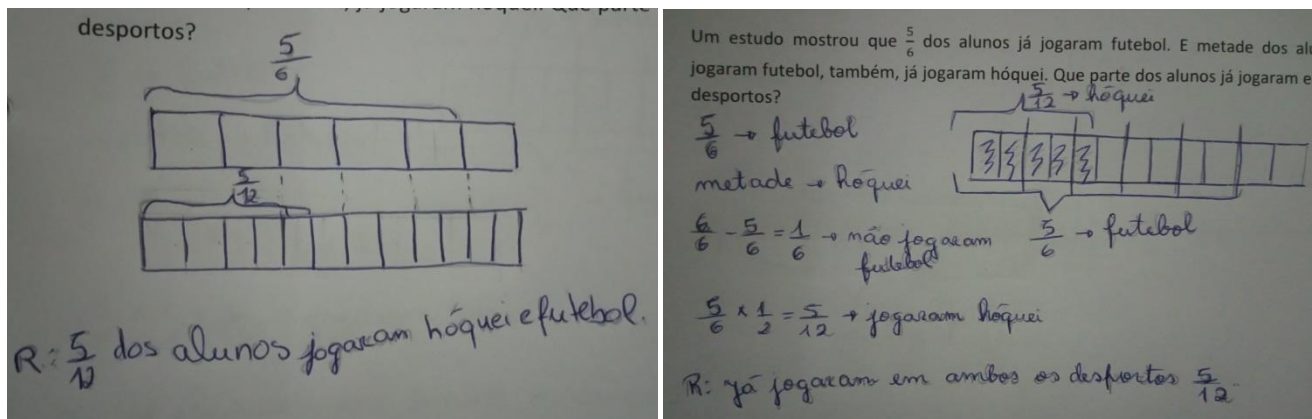 desportos?
5/6
5/12
R: 5/12 dos alunos jogaram hóquei e futebol.
Um estudo mostrou que 5/6 dos alunos já jogaram futebol. E metade dos
jogaram futebol, também, já jogaram hóquei. Que parte dos alunos já jogaram e
desportos?
5/12 → hóquei
5/6 → futebol
metade → hóquei
6/6 - 5/6 = 1/6 → não jogaram
futebol
5/6 → futebol
5/6 x 1/2 = 5/12 → jogaram hóquei
R: já jogaram em ambos os desportos 5/12.